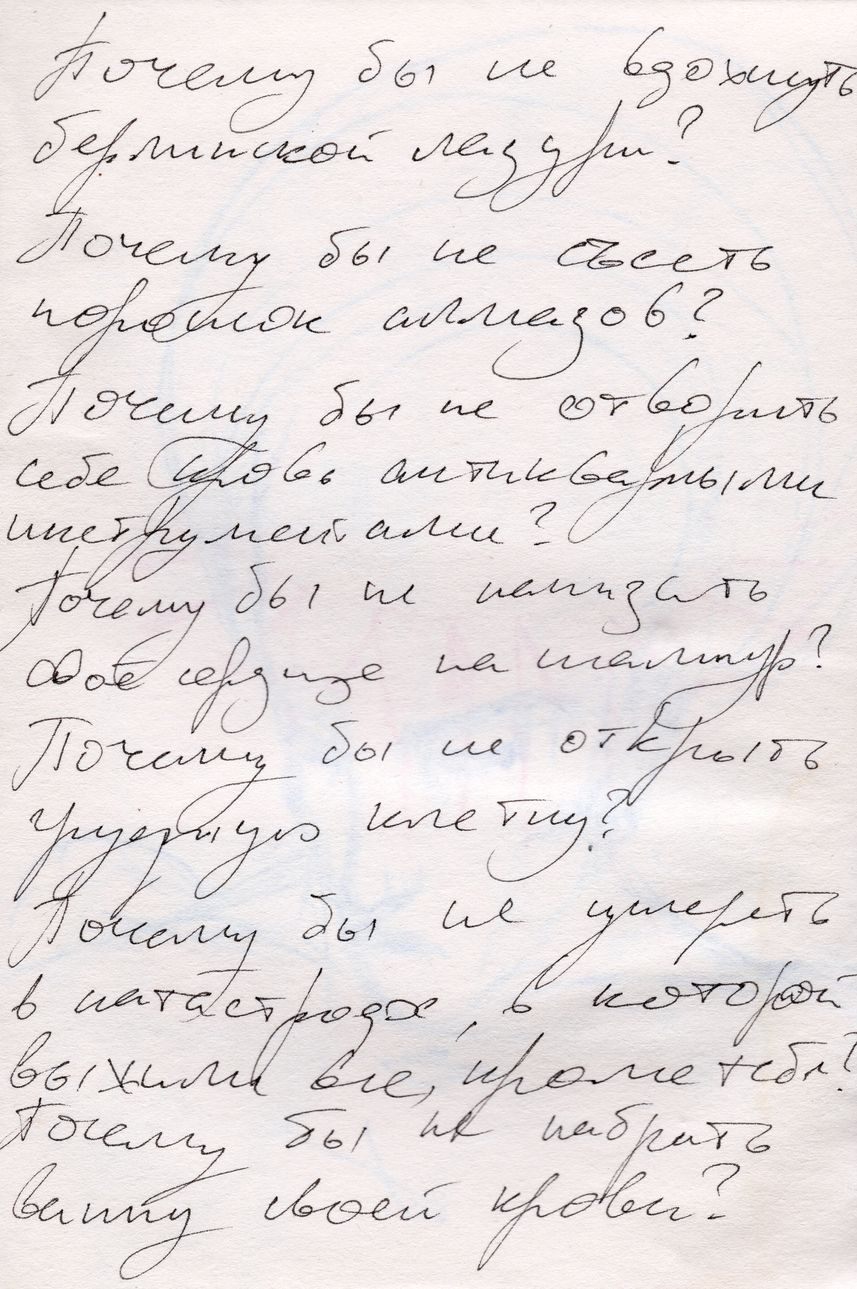 Почему бы не вдохнуть
берлинской лазури?
Почему бы не съесть
порошок алмазов?
Почему бы не отворить
себе кровь антикварными
инструментами?
Почему бы не нанизать
своё сердце на шампур?
Почему бы не открыть
грудную клетку?
Почему бы не умереть
в катастрофе, в которой
выжили все, кроме тебя?
Почему бы не набрать
ванну своей крови?